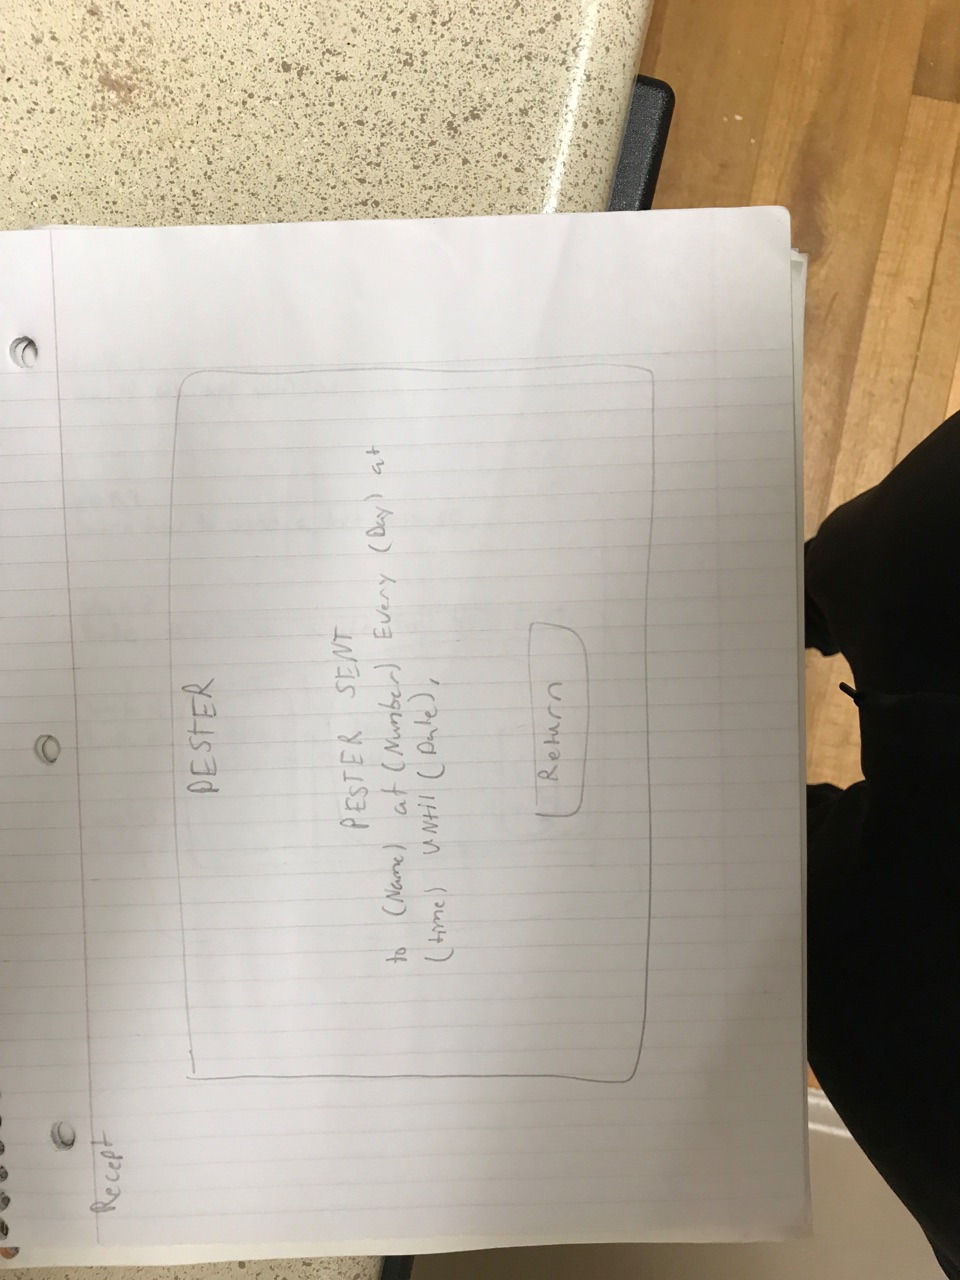 Recept
PESTER
PESTER SENT
to (Name) at (Number) Every (Day) at
(time) until (Date).
Return